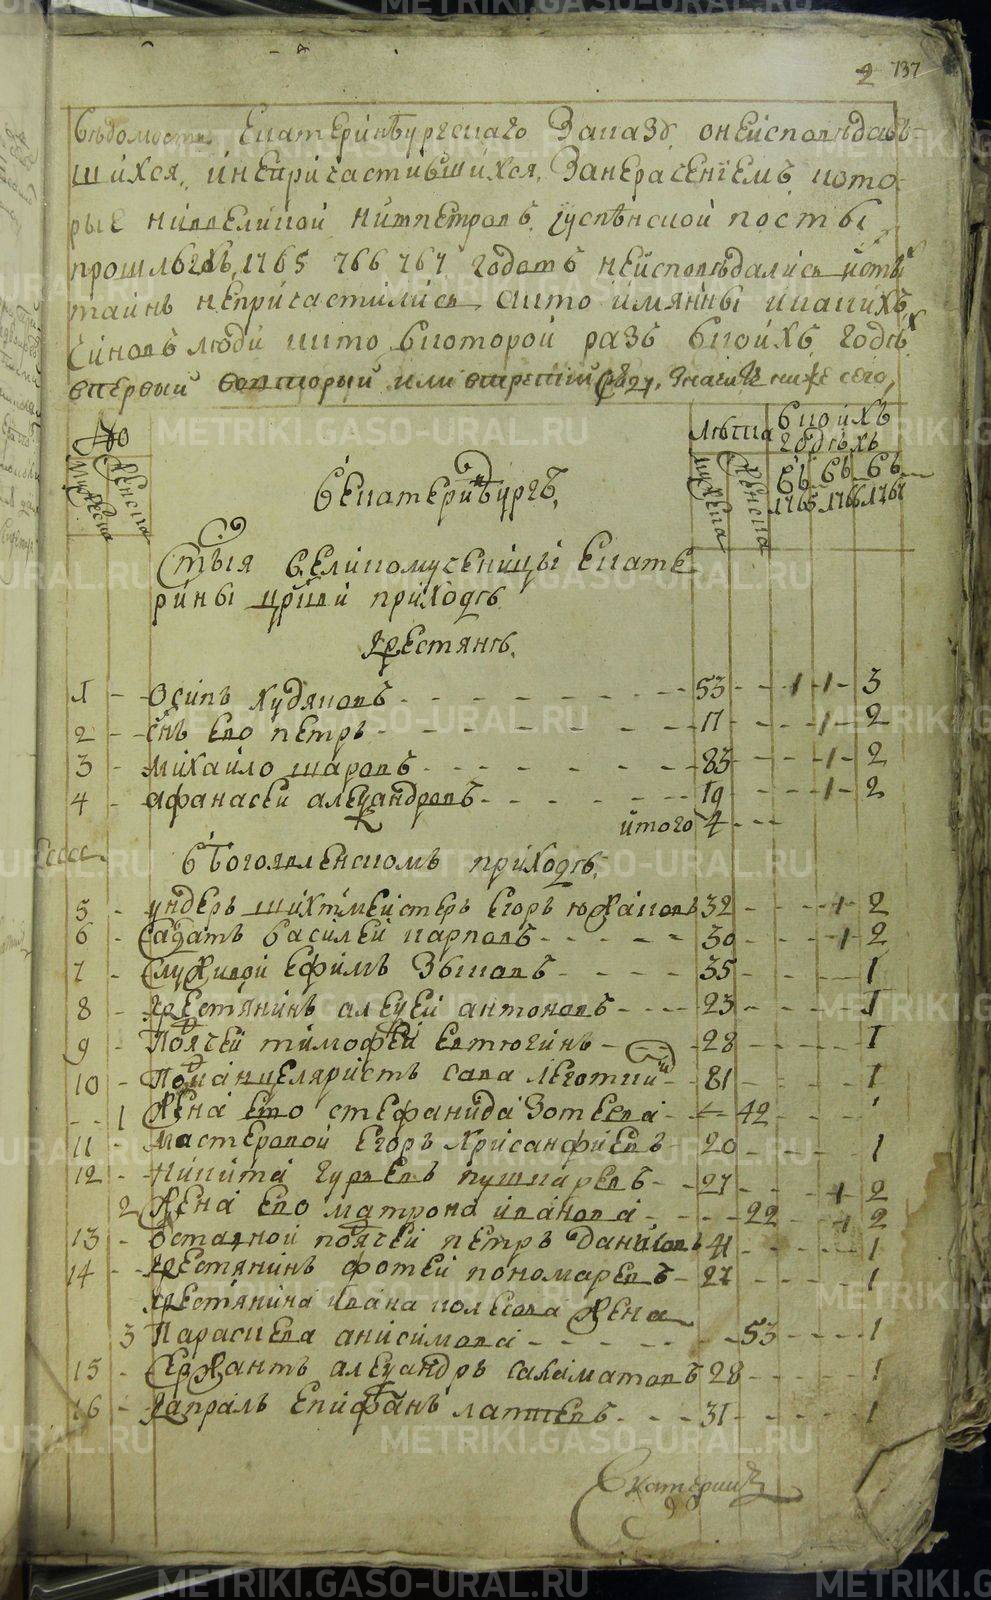 2 737
Вѣдомость Екатеринбургскаго Заказа онеисповѣдавъ-
шихся, инепричастившихся, Занерасенiемъ кото-
рые нивеликой нивпетровъ iуспѣнской посты
прошлыхъ 1765 766 767 годовъ неисповѣдались исты
таинъ непричастились акто имянны икакихъ
чиновъ люди икто вкоторой разъ вкоихъ годѣхъ
впервый вовторый или втретiй разъ, значитъ ниже сего,
No
мужеска
женска
Лѣта
мужска
женска
вкоихъ
годѣхъ
въ 1765
въ 1766
въ 1767
Векатеринбургѣ,
Стыя великомученицы Екате
рины цркви приходѣ
Крестянъ,
1 - - осипъ худяковъ - - - 53 - - 1 - 1 - 3
2 - - снъ ево петръ - - - 17 - - - 1 - 2
3 - михаило шаровъ - - - 83 - - - 1 - 2
4 - афанасеи александровъ - - - 19 - - - 1 - 2
итого 4 - - -
вбогоявленскомъ приходѣ,
5 - ундеръ шихтмеистеръ егоръ южаковъ 32 - - - 1 - 2
6 - Салдатъ василеи карповъ - - - 30 - - - 1 - 2
7 - Служивои ефимъ зыковъ - - - 35 - - - 1
8 - крестянинъ алексеи антоновъ - - - 23 - - - 1
9 - Подячеи тимофеи евтюгинъ - - 28 - - - 1
10 - Подканцеляристъ сава леготкий - 81 - - - 1
- - 1 жена ево стефанида зотеева - - 42 - - - 1
11 - мастеровои егоръ хрисанфиевъ - 20 - - - 1
12 - никита гурьевъ пушкаревъ - - 27 - - - 1 2
2 жена ево матрона иванова - - - 22 - - 1 2
13 - оставной подячеи петръ даниловъ 41 - - - 1
14 - - крестянинъ фотеи пономаревъ - 27 - - - 1
крестянина ивана колесова жена
3 Параскева анисимова - - - 53 - - - 1
15 - Сержантъ александръ саламатовъ 28 - - - 1
16 - капралъ епифанъ лаптевъ - - - 31 - - - 1
Екатерин